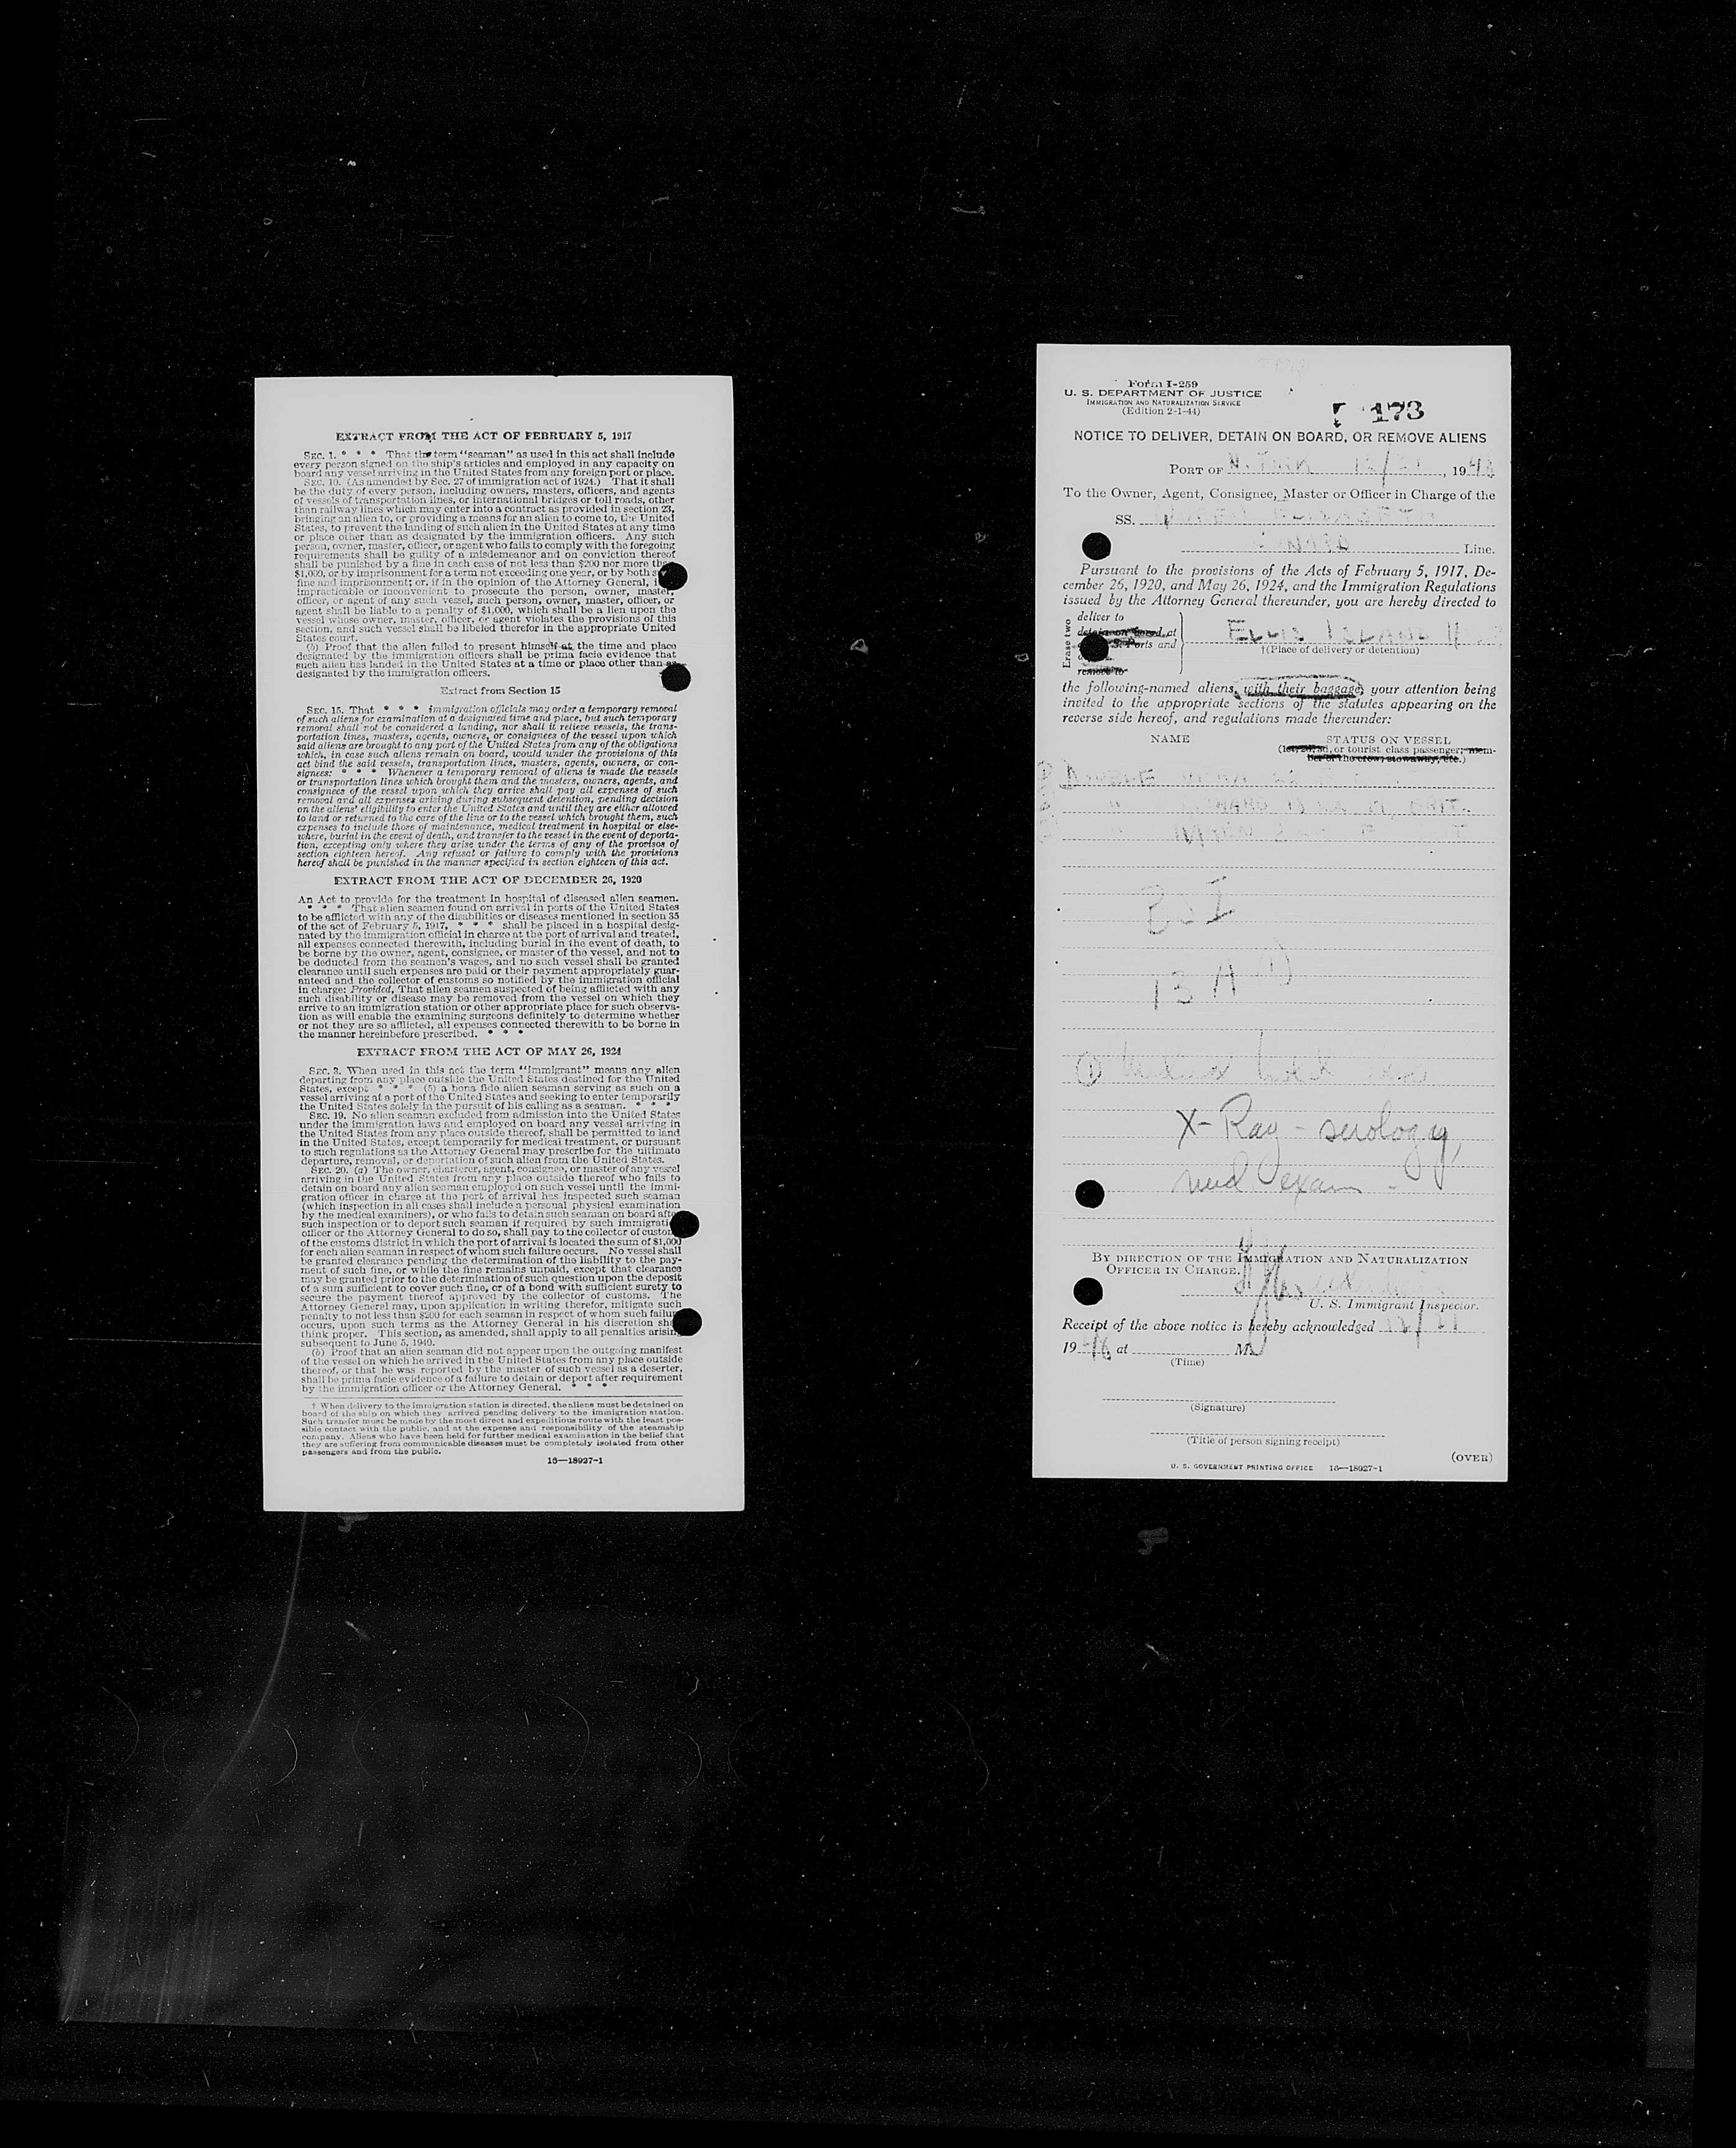 EXTRACT FROM THE ACT OF FEBRUARY 5, 1917
SEC. 1. * * * That the term "seaman" as used in this act shall include
every person signed on the ship's articles and employed in any capacity on
board any vessel arriving in the United States from any foreign port or place.
SEC. 10. (As amended by Sec. 27 of immigration act of 1924.) That it shall
be the duty of every person, including owners, masters, officers, and agents
of vessels of transportation lines, or international bridges or toll roads, other
than railway lines which may enter into a contract as provided in section 23,
bringing an alien to, or providing a means for an alien to come to, the United
States, to prevent the landing of such alien in the United States at any time
or place other than as designated by the immigration officers. Any such
person, owner, master, officer, or agent who fails to comply with the foregoing
requirements shall be guilty of a misdemeanor and on conviction thereof
shall be punished by a fine in each case of not less than $200 nor more
$1,000, or by imprisonment for a term not exceeding one year, or by both
fine and imprisonment; or, if in the opinion of the Attorney General,
impracticable or inconvenient to prosecute the person, owner, master,
officer, or agent of any such vessel, such person, owner, master, officer, or
agent shall be liable to a penalty of $1,000, which shall be a lien upon the
vessel whose owner, master, officer, or agent violates the provisions of this
section, and such vessel shall be libeled therefor in the appropriate United
States court.
(b) Proof that the alien failed to present himself at the time and place
designated by the immigration officers shall be prima facie evidence that
such alien has landed in the United States at a time or place other than as
designated by the immigration officers.
Extract from Section 15
SEC. 15. That * * * immigration officials may order a temporary removal
of such aliens for examination at a designated time and place, but such temporary
removal shall not be considered a landing, nor shall it relieve vessels, the trans-
portation lines, masters, agents, owners, or consignees of the vessel upon which
said aliens are brought to any port of the United States from any of the obligations
which, in case such aliens remain on board, would under the provisions of this
act bind the said vessels, transportation lines, masters, agents, owners, or con-
signees: * * * Whenever a temporary removal of aliens is made the vessels
or transportation lines which brought them and the masters, owners, agents, and
consignees of the vessel upon which they arrive shall pay all expenses of such
removal and all expenses arising during subsequent detention, pending decision
on the aliens' eligibility to enter the United States and until they are either allowed
to land or returned to the care of the line or to the vessel which brought them, such
expenses to include those of maintenance, medical treatment in hospital or else-
where, burial in the event of death, and transfer to the vessel in the event of deporta-
tion, excepting only where they arise under the terms of any of the provisos of
section eighteen hereof. Any refusal or failure to comply with the provisions
hereof shall be punished in the manner specified in section eighteen of this act.
EXTRACT FROM THE ACT OF DECEMBER 26, 1920
An Act to provide for the treatment in hospital of diseased alien seamen.
* * * That alien seamen found on arrival in ports of the United States
to be afflicted with any of the disabilities or diseases mentioned in section 35
of the act of February 5, 1917, * * * shall be placed in a hospital desig-
nated by the immigration official in charge at the port of arrival and treated,
all expenses connected therewith, including burial in the event of death, to
be borne by the owner, agent, consignee, or master of the vessel, and not to
be deducted from the seamen's wages, and no such vessel shall be granted
clearance until such expenses are paid or their payment appropriately guar-
anteed and the collector of customs so notified by the immigration official
in charge: Provided, That alien seamen suspected of being afflicted with any
such disability or disease may be removed from the vessel on which they
arrive to an immigration station or other appropriate place for such observa-
tion as will enable the examining surgeons definitely to determine whether
or not they are so afflicted, all expenses connected therewith to be borne in
the manner hereinbefore prescribed. * * *
EXTRACT FROM THE ACT OF MAY 26, 1924
SEC. 3. When used in this act the term "Immigrant" means any alien
departing from any place outside the United States destined for the United
States, except * * * (5) a bona fide alien seaman serving as such on a
vessel arriving at a port of the United States and seeking to enter temporarily
the United States solely in the pursuit of his calling as a seaman. * * *
SEC. 19. No alien seaman excluded from admission into the United States
under the immigration laws and employed on board any vessel arriving in
the United States from any place outside thereof, shall be permitted to land
in the United States, except temporarily for medical treatment, or pursuant
to such regulations as the Attorney General may prescribe for the ultimate
departure, removal, or deportation of such alien from the United States.
SEC. 20. (a) The owner, charterer, agent, consignee, or master of any vessel
arriving in the United States from any place outside thereof who fails to
detain on board any alien seaman employed on such vessel until the immi-
gration officer in charge at the port of arrival has inspected such seaman
(which inspection in all cases shall include a personal physical examination
by the medical examiners), or who fails to detain such seaman on board after
such inspection or to deport such seaman if required by such immigration
officer or the Attorney General to do so, shall pay to the collector of customs
of the customs district in which the port of arrival is located the sum of $1,000
for each alien seaman in respect of whom such failure occurs. No vessel shall
be granted clearance pending the determination of the liability to the pay-
ment of such fine, or while the fine remains unpaid, except that clearance
may be granted prior to the determination of such question upon the deposit
of a sum sufficient to cover such fine, or of a bond with sufficient surety to
secure the payment thereof approved by the collector of customs. The
Attorney General may, upon application in writing therefor, mitigate such
penalty to not less than $200 for each seaman in respect of whom such failure
occurs, upon such terms as the Attorney General in his discretion shall
think proper. This section, as amended, shall apply to all penalties arising
subsequent to June 5, 1940.
(b) Proof that an alien seaman did not appear upon the outgoing manifest
of the vessel on which he arrived in the United States from any place outside
thereof, or that he was reported by the master of such vessel as a deserter,
shall be prima facie evidence of a failure to detain or deport after requirement
by the immigration officer or the Attorney General. * * *
† When delivery to the immigration station is directed, the aliens must be detained on
board of the ship on which they arrived pending delivery to the immigration station.
Such transfer must be made by the most direct and expeditious route with the least pos-
sible contact with the public, and at the expense and responsibility of the steamship
company. Aliens who have been held for further medical examination in the belief that
they are suffering from communicable diseases must be completely isolated from other
passengers and from the public.
16—18927-1
Form I-259
U. S. DEPARTMENT OF JUSTICE
IMMIGRATION AND NATURALIZATION SERVICE
(Edition 2-1-44)
173
NOTICE TO DELIVER, DETAIN ON BOARD, OR REMOVE ALIENS
PORT OF N. YORK 12/21, 1946
To the Owner, Agent, Consignee, Master or Officer in Charge of the
SS. QUEEN ELIZABETH
CUNARD Line.
Pursuant to the provisions of the Acts of February 5, 1917, De-
cember 26, 1920, and May 26, 1924, and the Immigration Regulations
issued by the Attorney General thereunder, you are hereby directed to
Erase two
deliver to
detain on board at
Ports and
remove to
ELLIS ISLAND
†(Place of delivery or detention)
the following-named aliens, with their baggage, your attention being
invited to the appropriate sections of the statutes appearing on the
reverse side hereof, and regulations made thereunder:
NAME
STATUS ON VESSEL
(1st, 2d, 3d, or tourist class passenger; mem-
ber of the crew; stowaway, etc.)
BSI
13 A (1)
X-Ray - serology,
med exam -
BY DIRECTION OF THE IMMIGRATION AND NATURALIZATION
OFFICER IN CHARGE.
U. S. Immigrant Inspector.
Receipt of the above notice is hereby acknowledged 12/21
1946, at M.
(Time)
(Signature)
(Title of person signing receipt)
U. S. GOVERNMENT PRINTING OFFICE 16—18927-1
(OVER)